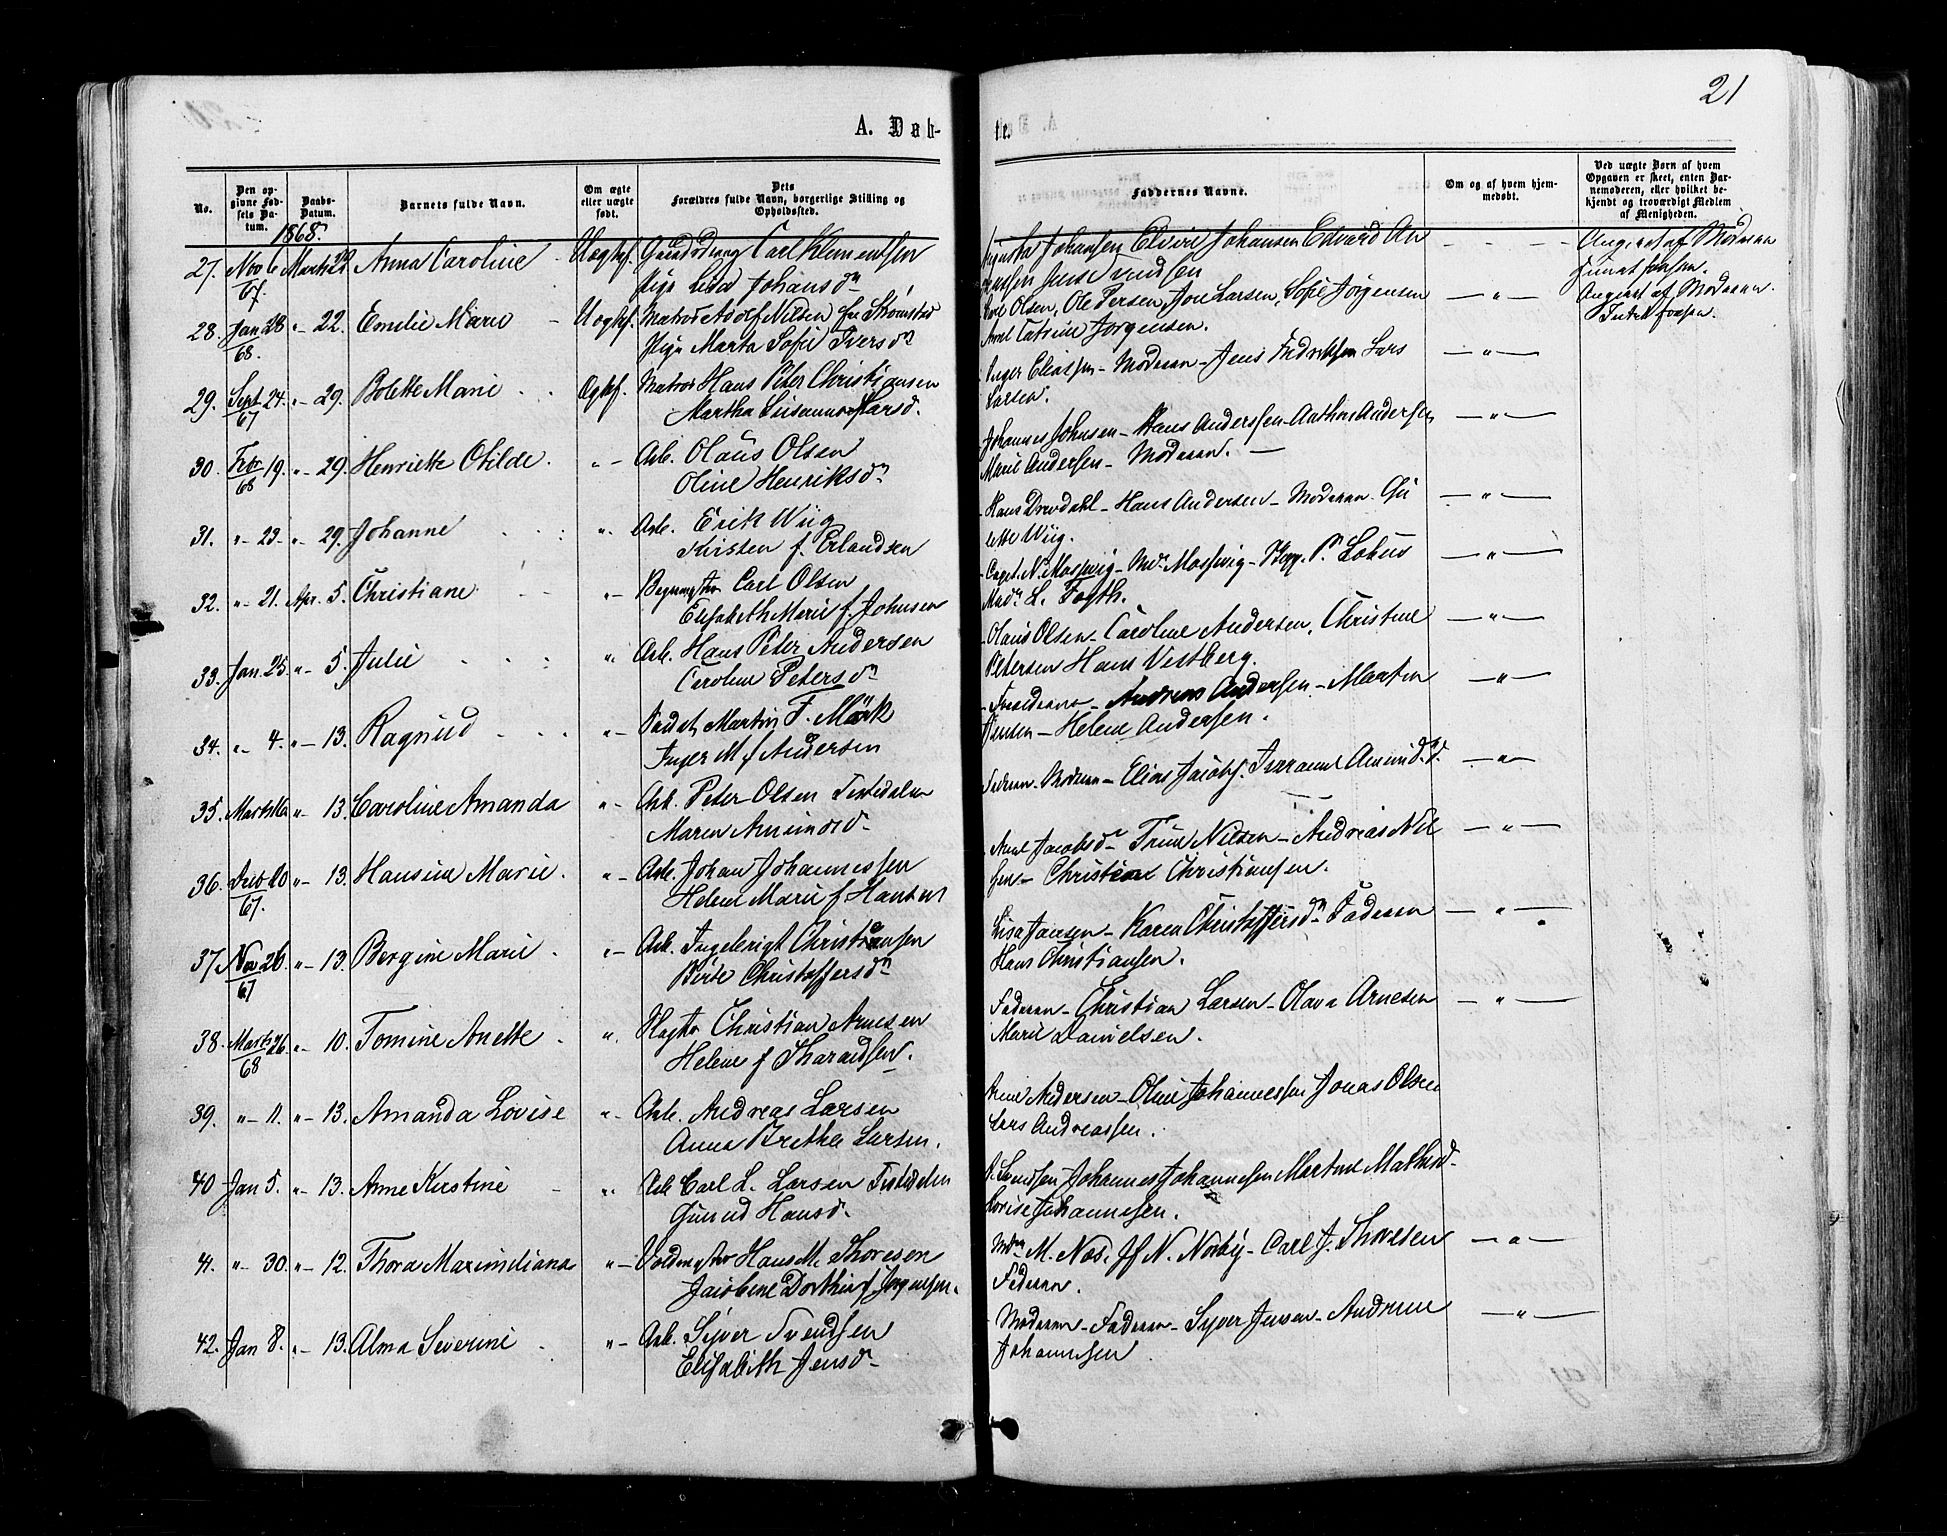 21
A. Døb-
te.
No.
Den opgivne Fødsels Datum.
Daabs-Datum.
Barnets fulde Navn.
Om ægte eller uægte født.
Dets Forældres fulde Navn, borgerlige Stilling og Opholdssted.
Faddernes Navne.
Om og af hvem hjemmedøbt.
Ved uægte Børn af hvem Opgaven er skeet, enten Barnemoderen, eller hvilket bekjendt og troværdigt Medlem af Menigheden.
1868.
27. Nov 6 67. Marts 22 Anna Caroline Carl Klementsen
Pige Johansdn
Johansen Johansen Edvard An
Angivet af Moderen
28. Jan 28 68. "- 22. Emilie Marie - Uægtef. Matros Adolf Nilsen fra Strømstad
Pige Marta Sofie Iversdn
Olsen, Ole Persen, Jon Larsen, Sofie Jørgensen — " —
Catrine Jørgensen.
Angivet af Moderen.
29. Sept 24. 67 "- 29. Bolette Marie Ægtef. Matros Hans Peter Christiansen
Martha Susanna Larsd.
Inger Eliassen - Moderen - Jens Fredriksen Lars — " —
Larsen.
30. Febr 19. 68 "- 29. Henriette Otilde. "- Arb. Olaus Olsen
Oline Henriksdn
Johannes Johnsen - Hans Anderssen - Andersen — " —
Marie Andersen - Moderen. —
31. "- 23. "- 29. Johanne ". Arb. Erik Wiig
Kirsten f. Erlandsen
Hans Drevdahl - Hans Andersen - Moderen - Gu — " —
Wiig.
32. "- 21. Apr. 5. Christiane "- Carl Olsen
Elisabeth Marie f. Johnsen
Capt. N. Mossvig - Md. Mossvig - — " —
L. Fogth.
33. Jan. 25. "- 5. Julie " Arb. Hans Peter Andersen
Caroline Petersdn
Olaus Olsen - Caroline Andersen, Christine — " —
Petersen Hans Vestberg.
34. "- 4. "- 13. Ragnild "- Martin F. Mörk
Inger M. f Andersen
Andreas Andersen - Martin — " —
Jensen - Helene Andersen.
35. Marts "- 13. Caroline Amanda "- Arb. Peter Olsen Tistedalen
Maren Amundsd.
Faderen - Moderen - Elias Jacobs. — " —
36. 10 67. "- 13. Hansine Marie. "- Arb. Johan Johannessen
Helene Marie f Hansen
Jacobsdn Trine Nilsen - Andreas Nil — " —
sen - Christian Christiansen.
37 Nov 26 67 "- 13. Bergine Marie "- Arb. Ingebrigt Christiansen
Birte Christoffersdn
Lisa Jansen - Karen Christoffersdn Faderen — " —
Hans Christiansen.
38. Marts 26. 68 "- 10. Tomine Anette ". Christian Arnesen
Helene f Tharaldsen.
Faderen - Christian Larsen - Olava Arnesen — " —
Marie Danielsen.
39. "- 11. "- 13. Amanda Lovise "- Arb. Andreas Larsen
Anna Brethe Larsen.
Andersen - Oline Johannessen Jonas Olsen
Lars Andreassen.
40 Jan 5. "- 13. Anne Kirstine - " Arb Carl L. Larsen Tistedalen
Gunild Hansd.
Svendsen Johannes Johannesen Martine Mathisd.
Lovise Johannesen.
41. "- 30. "- 12. Thora Maximiliana "- Hans M. Thoresen
Jacobine Dorthea f Jørgensen.
M. Næs. N. Norby - Carl J. Thoresen — " —
Faderen.
42. Jan 8. "- 13. Alma Severine "- Arb. Syver Svendsen
Elisabeth Jensd.
Moderen - Faderen - Syver Jensen - Andrine — " —
Johannesen